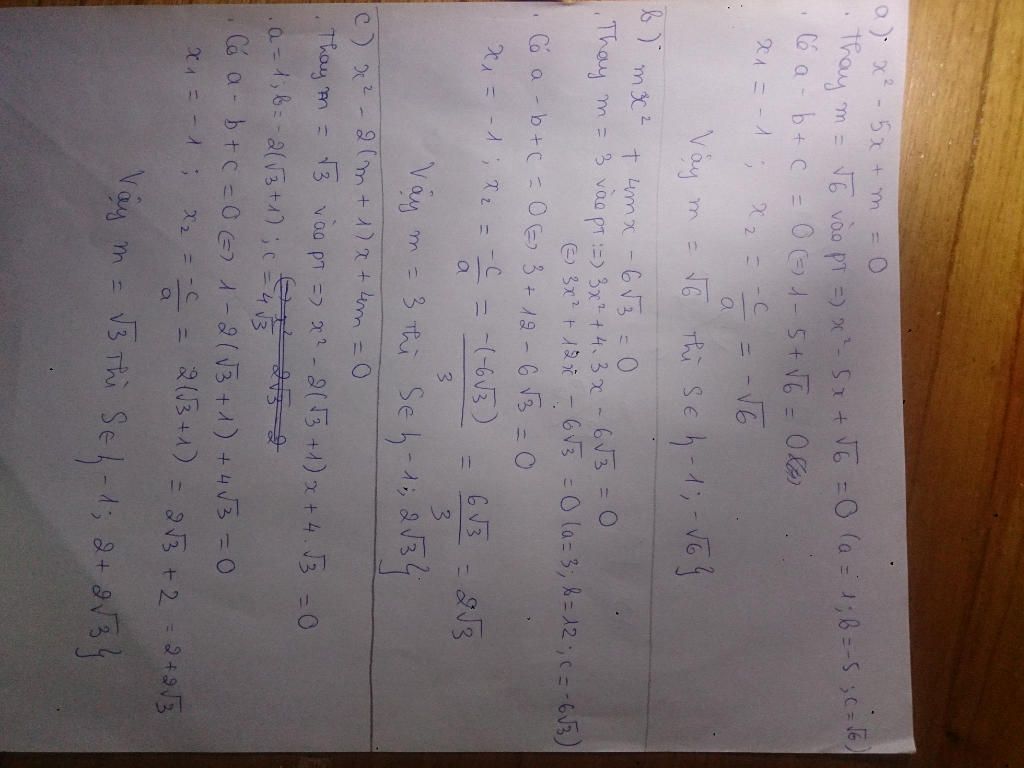 a) x² - 5x + m = 0
. Thay m = √6 vào pt => x² - 5x + √6 = 0 (a = 1; b = -5; c = √6)
. Có a - b + c = 0 <=> 1 - 5 + √6 = 0
x₁ = -1 ; x₂ = -c/a = -√6
Vậy m = √6 thì S∈{-1; -√6}
b) mx² + 4mx - 6√3 = 0
. Thay m = 3 vào pt => 3x² + 4.3x - 6√3 = 0
<=> 3x² + 12x - 6√3 = 0 (a = 3; b = 12; c = -6√3)
. Có a - b + c = 0 <=> 3 + 12 - 6√3 = 0
x₁ = -1 ; x₂ = -c/a = -(-6√3)/3 = 6√3/3 = 2√3
Vậy m = 3 thì S∈{-1; 2√3}
c) x² - 2(m + 1)x + 4m = 0
. Thay m = √3 vào pt => x² - 2(√3 + 1)x + 4.√3 = 0
. a = 1; b = -2(√3 + 1); c = 4√3
. Có a - b + c = 0 <=> 1 - 2(√3 + 1) + 4√3 = 0
x₁ = -1 ; x₂ = -c/a = 2(√3 + 1) = 2√3 + 2 = 2 + 2√3
Vậy m = √3 thì S∈{-1; 2 + 2√3}